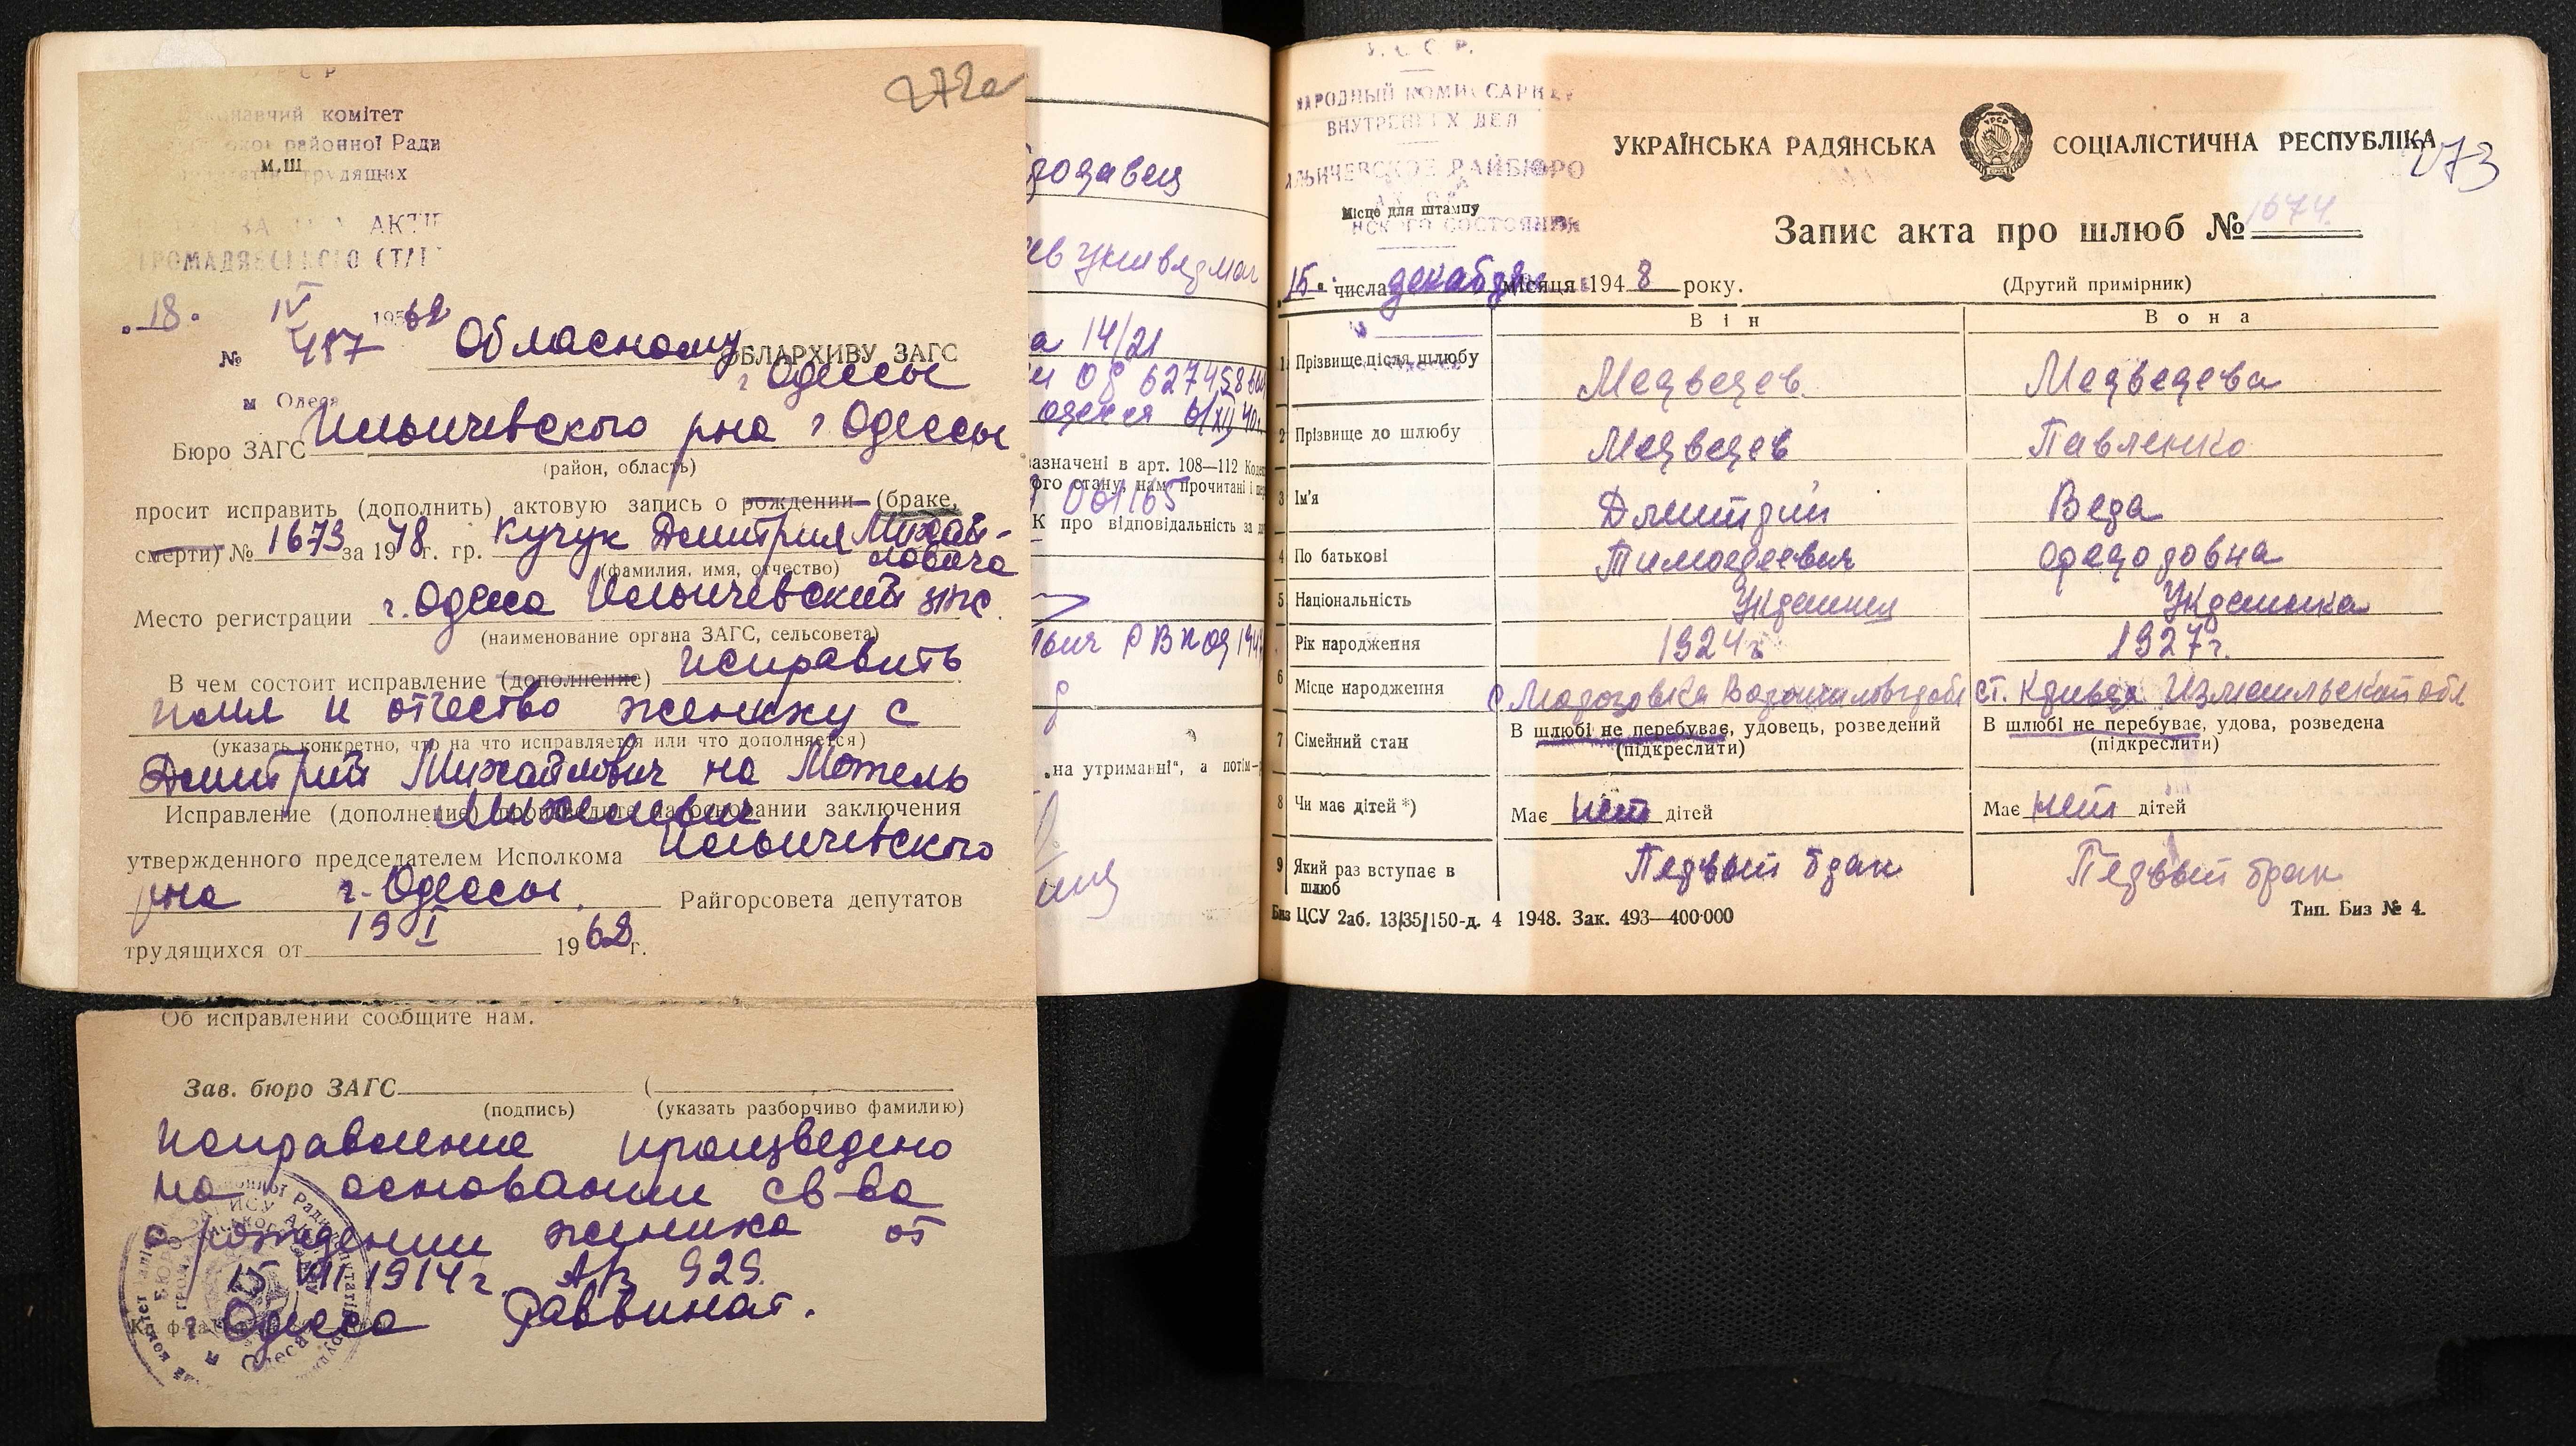 272а
комітет
районної Ради
м.Ш
трудящих
АКТІВ
ГРОМАДЯНСЬКОГО СТАН
"18" IV 1962
№ 487 Областному ОБЛАРХИВУ ЗАГС
г Одессы
м Одеса
Бюро ЗАГС Ильичевского рна г Одессы
(район, область)
просит исправить (дополнить) актовую запись о рождении (браке,
смерти) № 1673 за 1948 г. гр. Кучук Дмитрия Михай-
ловича
(фамилия, имя, отчество)
Место регистрации г. Одесса Ильичевский загс.
(наименование органа ЗАГС, сельсовета)
В чем состоит исправление (дополнение) исправить
имя и отчество жениху с
(указать конкретно, что на что исправляется или что дополняется)
Дмитрий Михайлович на Мотель
Исправление (дополнение) произведите на основании заключения
утвержденного председателем Исполкома Ильичевского
рна г. Одессы. Райгорсовета депутатов
трудящихся от 19 I 1962 г.
Об исправлении сообщите нам.
Зав. бюро ЗАГС (
(подпись) (указать разборчиво фамилию)
исправление произведено
на основании св-ва
о рождении жениха от
15 VIII 1914 г. Ар 929.
г Одесса Раввинат.
а 14/21
азначені в арт. 108—112 Коде
ого стану, нам прочитані і
061165
К про відповідальність за
„на утриманні“, а потім—
У. С С Р.
НАРОДНЫЙ КОМИССАРИАТ
ВНУТРЕННИХ ДЕЛ
ИЛЬИЧЕВСКОЕ РАЙБЮРО
Місце для штампу
НСКОГО СОСТОЯНИЯ
УКРАЇНСЬКА РАДЯНСЬКА СОЦІАЛІСТИЧНА РЕСПУБЛІКА
273
Запис акта про шлюб № 1674.
"15" числа декабря місяця 1948 року. (Другий примірник)
Він Вона
1 Прізвище після шлюбу Медведев. Медведева
2 Прізвище до шлюбу Медведев Павленко
3 Ім'я Дмитрий Веда
4 По батькові Тимофеевич Федоровна
5 Національність Украинец Украинка
Рік народження 1924 г. 1927 г.
6 Місце народження с Морозовка Ворошиловгр обл ст. Кривая Измаильской обл
7 Сімейний стан В шлюбі не перебуває, удовець, розведений (підкреслити) В шлюбі не перебуває, удова, розведена (підкреслити)
8 Чи має дітей *) Має нет дітей Має нет дітей
9 Який раз вступає в шлюб Первый брак Первый брак
Биз ЦСУ 2аб. 13/35/150-д. 4 1948. Зак. 493—400·000 Тип. Биз № 4.